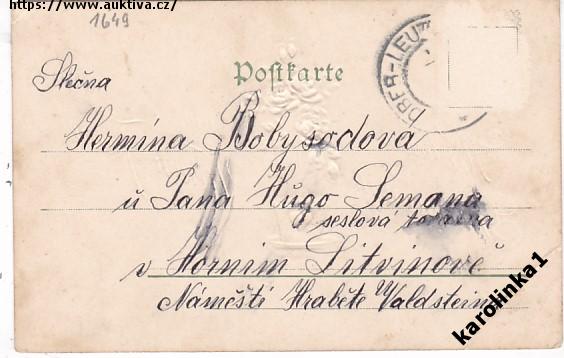 https://www.auktiva.cz/
1649
Postkarte
OBER-LEUT
Slečna
Hermína Bobysodova
u Pana Hugo Semana
seslová továrna
v Horním Litvinově
Náměstí Hraběte Valdsteina
karolinka1